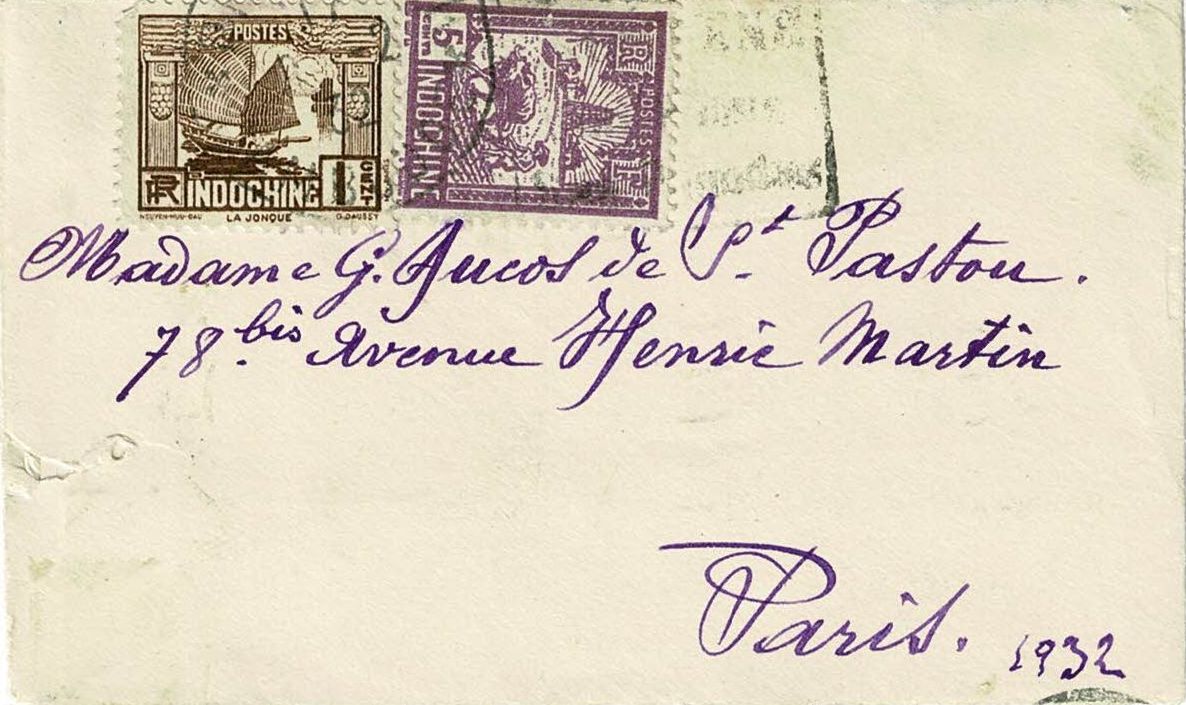 POSTES
RF INDOCHINE 1 CENT
NGUYEN-HUU-DAU LA JONQUE G.DAUSSY
5 CENTS INDOCHINE
RF POSTES
Madame G. Aucos de St Pastou.
78 bis Avenue Henrie Martin
Paris.
1932